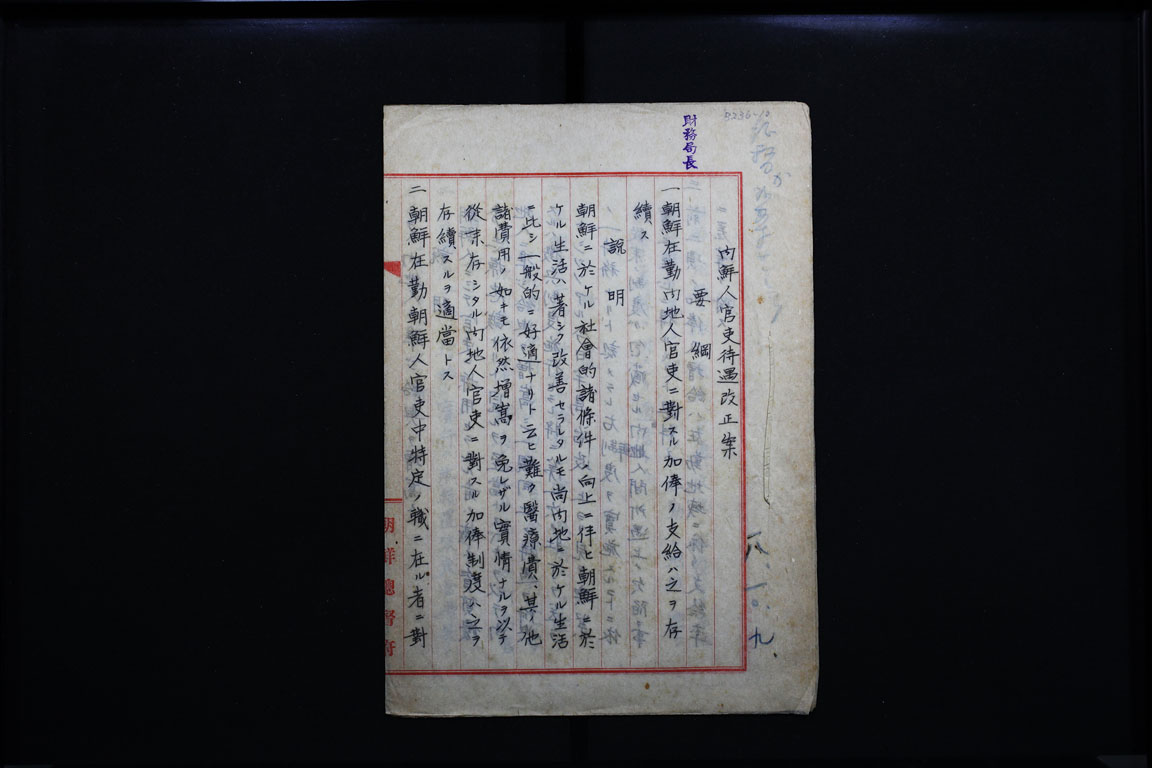 財務局長
内鮮人官吏待遇改正案
要綱
一 朝鮮在勤内地人官吏ニ對スル加俸ノ支給ハ之ヲ存
續ス
説明
朝鮮ニ於ケル社會的諸條件ノ向上ニ伴ヒ朝鮮ニ於
ケル生活ハ著シク改善セラレタルモ尚内地ニ於ケル生活
ニ比シ一般的ニ好適ナリト云ヒ難ク醫療費、其ノ他
諸費用ノ如キモ依然增嵩ヲ免レザル實情ナルヲ以テ
從来存シタル内地人官吏ニ對スル加俸制度ハ之ヲ
存續スルヲ適當トス
二 朝鮮在勤朝鮮人官吏中特定ノ職ニ在ル者ニ對
朝鮮總督府
一八、一〇、九